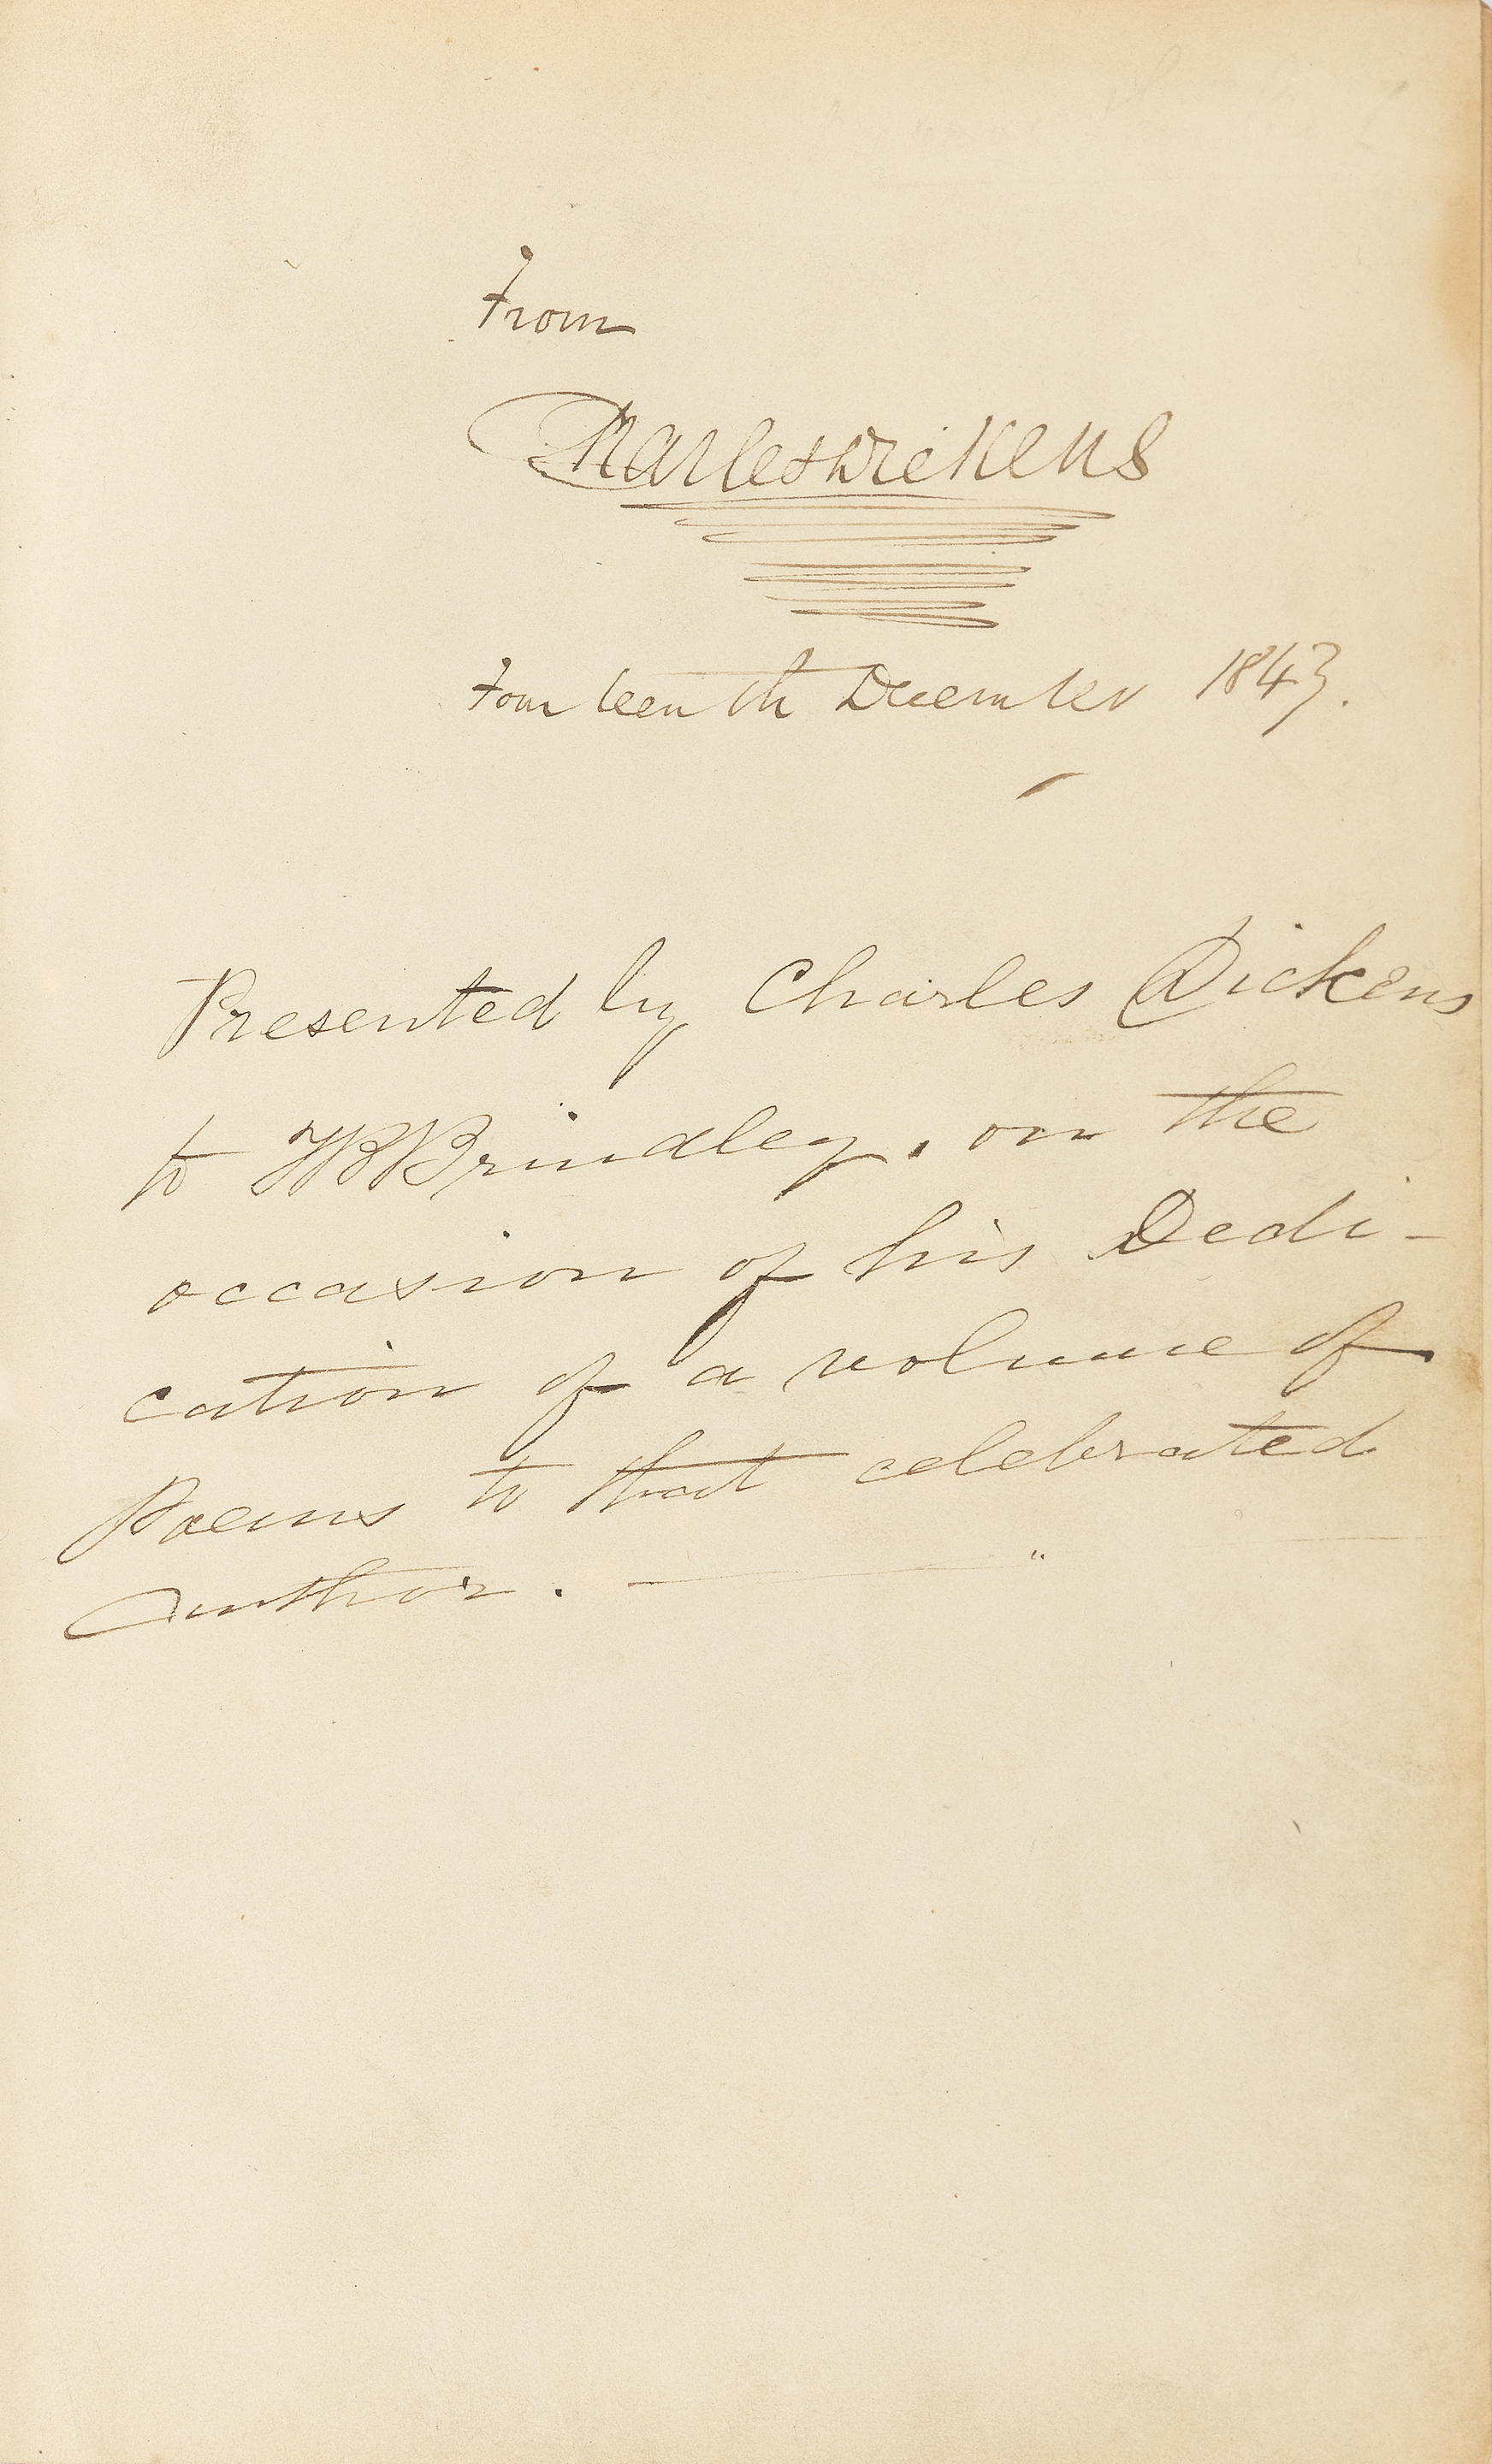 From
Charles Dickens
Fourteenth December 1843.
Presented by Charles Dickens
to TBBrindley. on the
occasion of his Dedi-
cation of a volume of
Poems to that celebrated
Author.